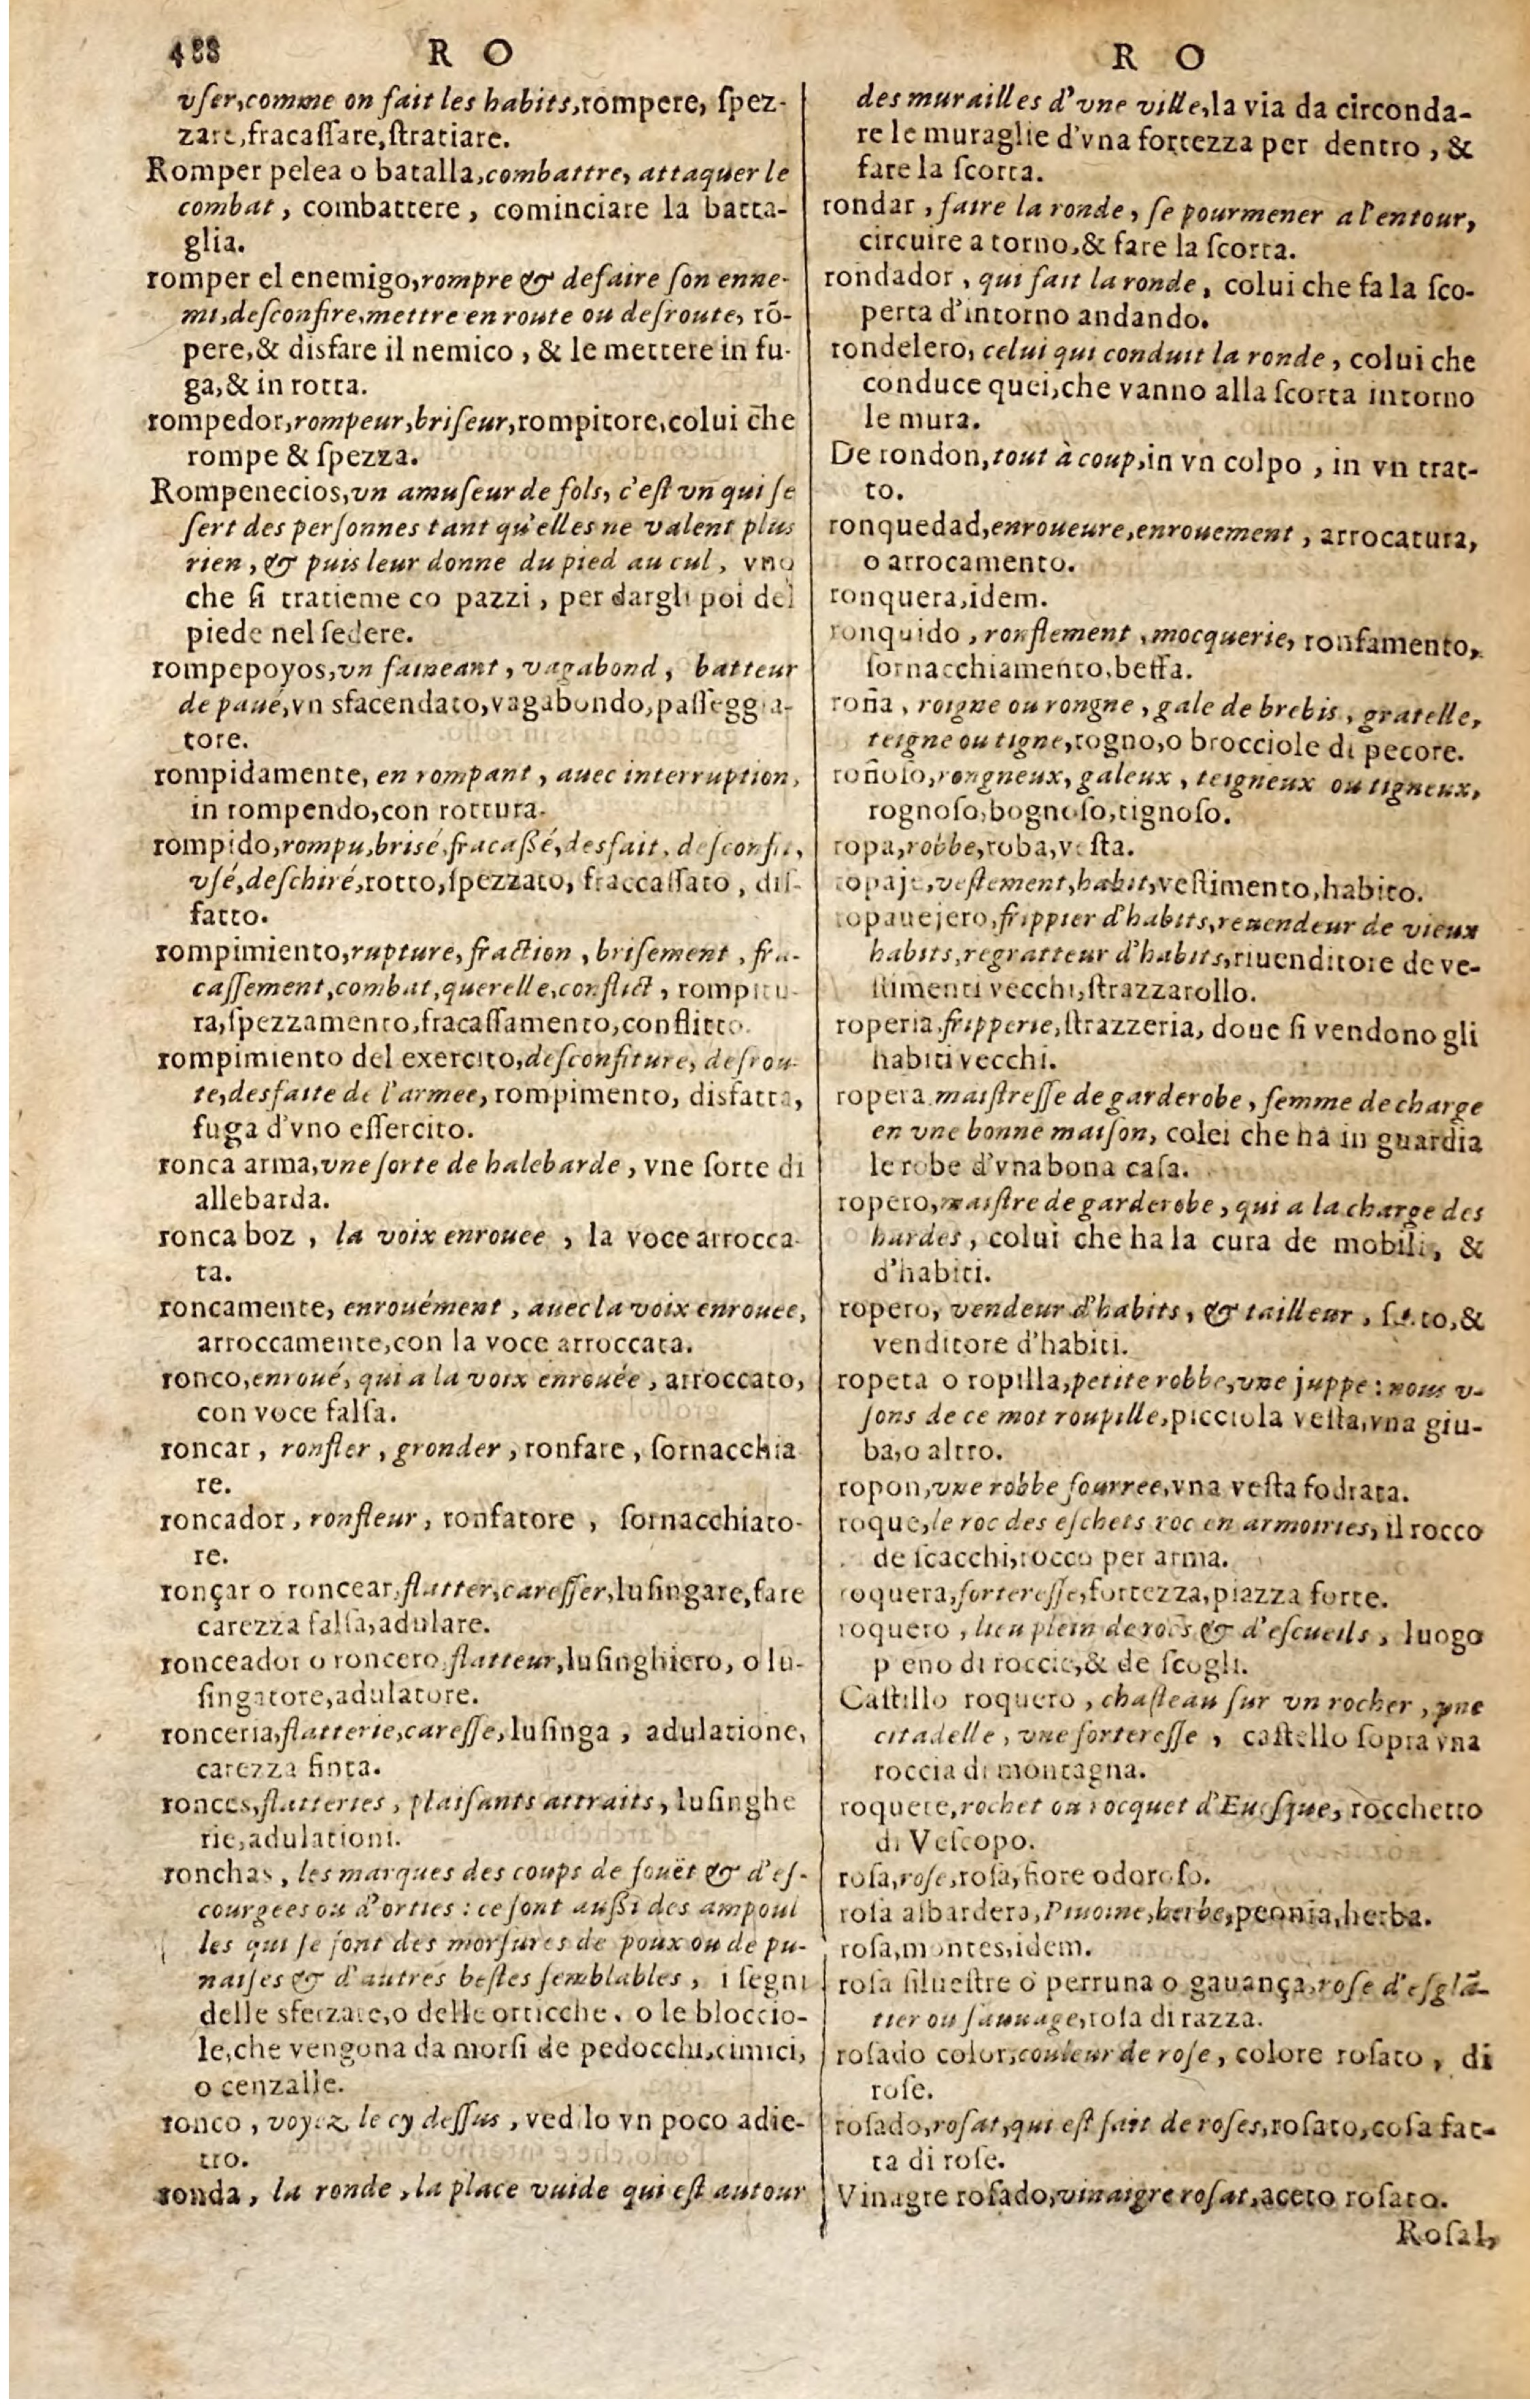 488 R O
vſer,comme on fait les habits,rompere, ſpez-
zare,fracaſſare,ſtratiare.
Romper pelea o batalla,combattre, attaquer le
combat, combattere, cominciare la batta-
glia.
romper el enemigo,rompre & defaire ſon enne-
mi,deſconfire,mettre en route ou deſroute, rõ-
pere,& disfare il nemico, & le mettere in fu-
ga,& in rotta.
rompedor,rompeur,briſeur,rompitore,colui che
rompe & ſpezza.
Rompenecios,vn amuſeur de fols, c'eſt vn qui ſe
ſert des perſonnes tant qu'elles ne valent plus
rien, & puis leur donne du pied au cul, vno
che ſi tratieme co pazzi, per dargli poi del
piede nel ſedere.
rompepoyos,vn faineant, vagabond, batteur
de paué,vn sfacendato,vagabondo,paſſeggia-
tore.
rompidamente, en rompant, auec interruption,
in rompendo,con rottura.
rompido,rompu,brisé,fracaßé,desfait, deſconfit,
vſé,deſchiré,rotto,ſpezzato, fraccaſſato, diſ-
fatto.
rompimiento,rupture, fraction, briſement, fra-
caſſement,combat,querelle,conflict, rompitu-
ra,ſpezzamento,fracaſſamento,conflitto.
rompimiento del exercito,deſconfiture, deſrou-
te,desfaite de l'armee, rompimento, disfatta,
fuga d'vno eſſercito.
ronca arma,vne ſorte de halebarde, vne ſorte di
allebarda.
ronca boz, la voix enrouee, la voce arrocca-
ta.
roncamente, enrouément, auec la voix enrouee,
arroccamente,con la voce arroccata.
ronco,enroué, qui a la voix enrouée, arroccato,
con voce falſa.
roncar, ronfler, gronder, ronfare, ſornacchia
re.
roncador, ronfleur, ronfatore, ſornacchiato-
re.
ronçar o roncear,flatter,careſſer,luſingare,fare
carezza falſa,adulare.
ronceador o roncero,flatteur,luſinghiero, o lu-
ſingatore,adulatore.
ronceria,flatterie,careſſe,luſinga, adulatione,
carezza finta.
ronces,flatteries, plaiſants attraits, luſinghe
rie,adulationi.
ronchas, les marques des coups de fouët & d'eſ-
courgees ou d'orties: ce ſont außi des ampoul
les qui ſe font des morſures de poux ou de pu-
naiſes & d'autres beſtes ſemblables, i ſegni
delle sferzate,o delle orticche, o le bloccio-
le,che vengona da morſi de pedocchi,cimici,
o cenzalle.
ronco, voyez le cy deſſus, vedilo vn poco adie-
tro.
ronda, la ronde, la place vuide qui eſt autour
R O
des murailles d'vne ville,la via da circonda-
re le muraglie d'vna fortezza per dentro, &
fare la ſcorta.
rondar, faire la ronde, ſe pourmener a l'entour,
circuire a torno,& fare la ſcorta.
rondador, qui fait la ronde, colui che fa la ſco-
perta d'intorno andando.
rondelero, celui qui conduit la ronde, colui che
conduce quei,che vanno alla ſcorta intorno
le mura.
De rondon,tout à coup,in vn colpo, in vn trat-
to.
ronquedad,enroueure,enrouement, arrocatura,
o arrocamento.
ronquera,idem.
ronquido, ronflement, mocquerie, ronfamento,
ſornacchiamento,beffa.
roña, roigne ou rongne, gale de brebis, gratelle,
teigne ou tigne,rogno,o brocciole di pecore.
roñoſo,rongneux, galeux, teigneux ou tigneux,
rognoſo,bognoſo,tignoſo.
ropa,robbe,roba,veſta.
ropaje,veſtement,habit,veſtimento,habito.
ropauejero,frippier d'habits,reuendeur de vieux
habits,regratteur d'habits,riuenditore de ve-
ſtimenti vecchi,ſtrazzarollo.
roperia,fripperie,ſtrazzeria, doue ſi vendono gli
habiti vecchi.
ropera,maiſtreſſe de garderobe, femme de charge
en vne bonne maiſon, colei che ha in guardia
le robe d'vna bona caſa.
ropero,maiſtre de garderobe, qui a la charge des
hardes, colui che ha la cura de mobili, &
d'habiti.
ropero, vendeur d'habits, & tailleur, &
venditore d'habiti.
ropeta o ropilla,petite robbe,vne juppe: nous v-
ſons de ce mot roupille,picciola veſta,vna giu-
ba,o altro.
ropon,vne robbe fourree,vna veſta fodrata.
roque,le roc des eſchets roc en armoiries, il rocco
de ſcacchi,rocco per arma.
roquera,fortereſſe,fortezza,piazza forte.
roquero, lieu plein de rocs & d'eſcueils, luogo
pieno di roccie,& de ſcogli.
Caſtillo roquero, chaſteau ſur vn rocher, vne
citadelle, vne fortereſſe, caſtello ſopra vna
roccia di montagna.
roquete,rochet ou rocquet d'Eueſque, rocchetto
di Veſcopo.
roſa,roſe,roſa,fiore odoroſo.
roſa albardera,Piuoine,herbe,peonia,herba.
roſa,montes,idem.
roſa ſilueſtre o perruna o gauança,roſe d'eſglã-
tier ou ſauuage,roſa di razza.
roſado color,couleur de roſe, colore roſato, di
roſe.
roſado,roſat,qui eſt fait de roſes,roſato,coſa fat-
ta di roſe.
Vinagre roſado,vinaigre roſat,aceto roſato.
Roſal,